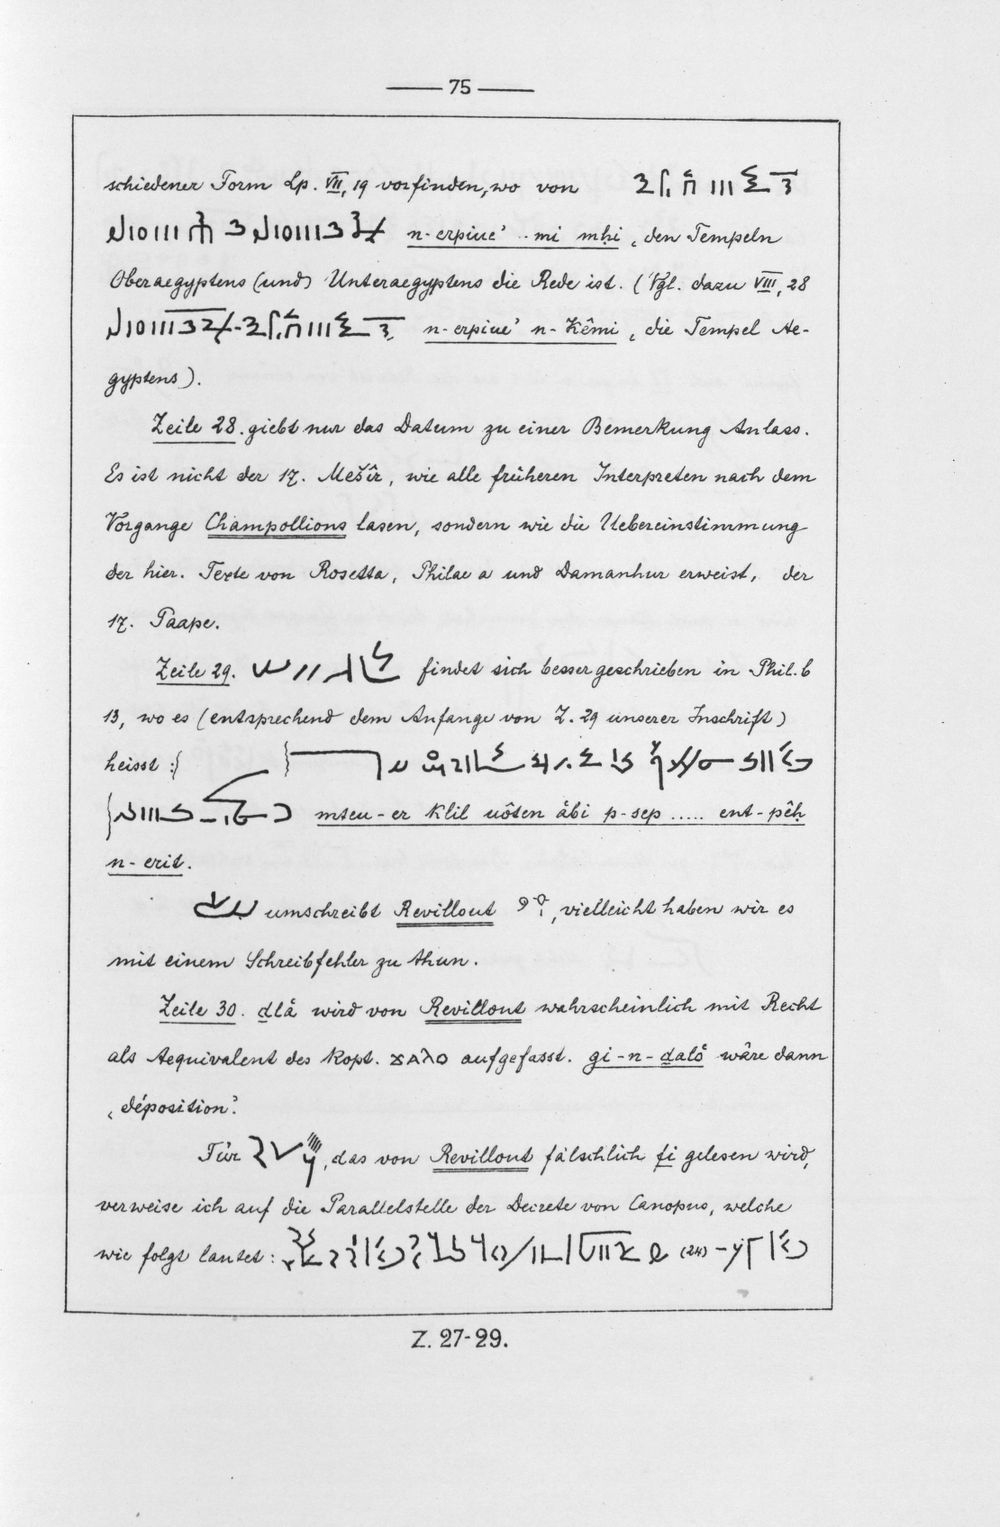 75
schiedener Form Lp. VII, 19 vorfinden, wo von
n-erpiue' .. mi mḥi ‚den Tempeln
Oberaegyptens (und) Unteraegyptens die Rede ist. (Vgl. dazu VIII, 28
n-erpiue' n-Kêmi ‚die Tempel Ae-
gyptens).
Zeile 28. giebt nur das Datum zu einer Bemerkung Anlass.
Es ist nicht der 17. Mešîr, wie alle früheren Interpreten nach dem
Vorgange Champollions lasen, sondern wie die Uebereinstimmung
der hier. Texte von Rosetta, Philae a und Damanhur erweist, der
17. Paape.
Zeile 29. findet sich besser geschrieben in Phil. b
13, wo es (entsprechend dem Anfange von Z. 29 unserer Inschrift)
heisst :
mteu-er klil uôten åbi p-sep ..... ent-pêḥ
n-erit.
umschreibt Revillout , vielleicht haben wir es
mit einem Schreibfehler zu thun.
Zeile 30. dlå wird von Revillout wahrscheinlich mit Recht
als Aequivalent des kopt. ϫⲁⲗⲟ aufgefasst. gi-n-dalô wäre dann
‚déposition'.
Für , das von Revillout fälschlich fi gelesen wird,
verweise ich auf die Parallelstelle der Decrete von Canopus, welche
wie folgt lautet : (24)
Z. 27-29.